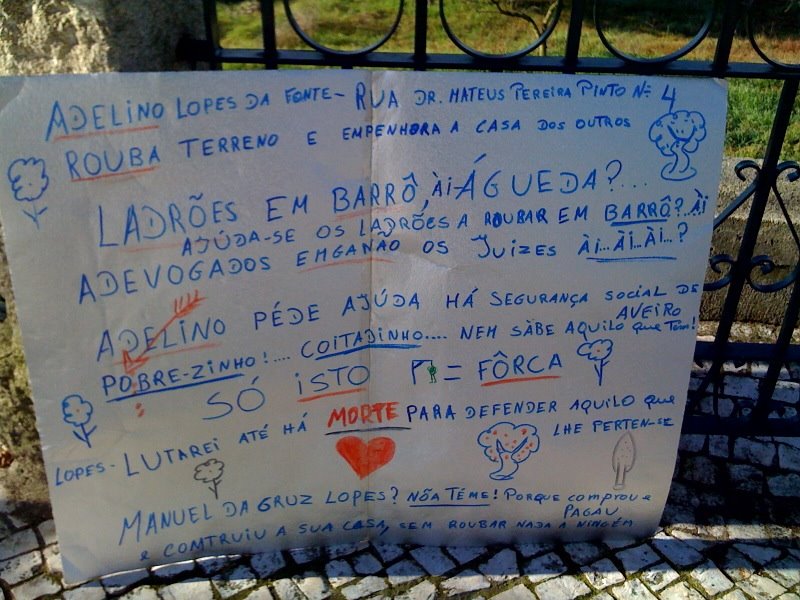 ADELINO LOPES DA FONTE - RUA DR. MATEUS PEREIRA PINTO Nº 4
ROUBA TERRENO E EMPENHORA A CASA DOS OUTROS
LADRÕES EM BARRÔ, ÀI-ÁGUEDA?...
AJÚDA-SE OS LADRÕES A ROUBAR EM BARRÔ?.ÀI
ADEVOGADOS EMGANÃO OS JUIZES ÀI...ÀI...ÀI...?
ADELINO PÉDE AJÚDA HÁ SEGURANÇA SOCIAL DE AVEIRO
POBRE-ZINHO!.... COITADINHO.... NEM SÀBE AQUILO QUE TEM!
SÓ ISTO = FÔRCA
LOPES - LUTAREI ATÉ HÁ MORTE PARA DEFENDER AQUILO QUE LHE PERTEN-SE
MANUEL DA GRUZ LOPES? NÕA TÉME! PORQUE COMPROU E PAGÁU
E COMTRUIU A SUA CASA, SEM ROUBAR NADA A NINGÉM